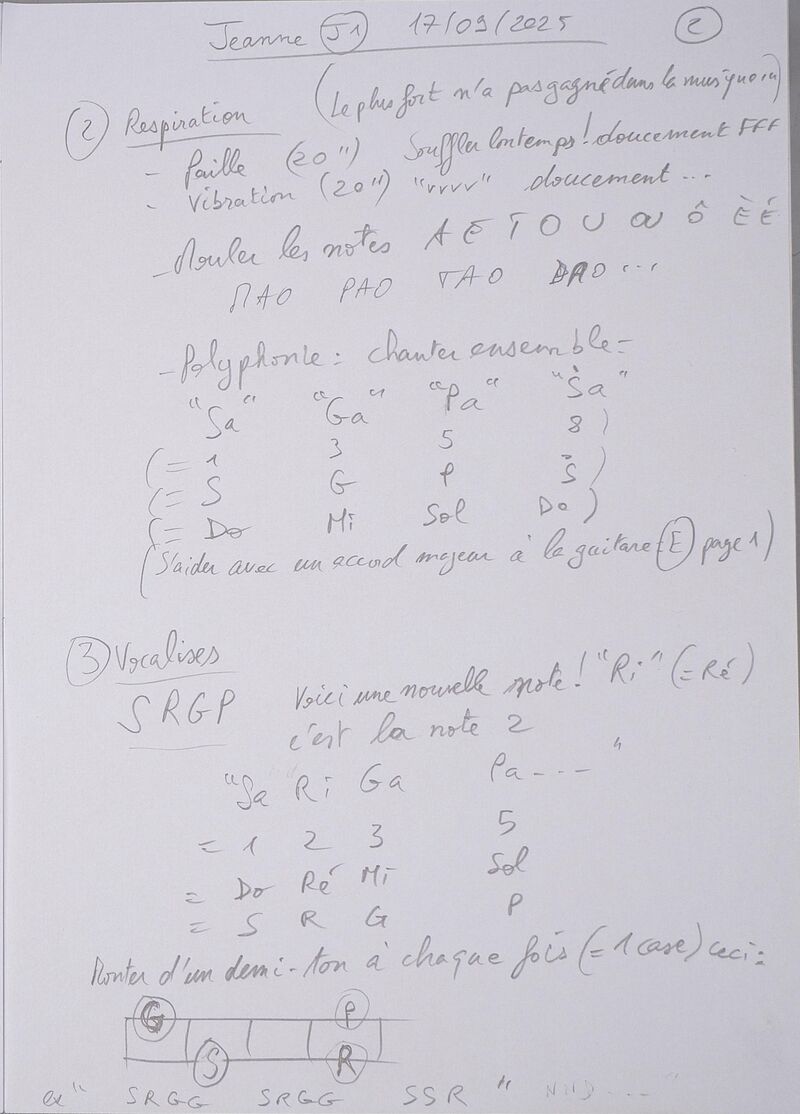 Jeanne J1 17/09/2025 2
(Le plus fort n'a pas gagné dans la musique !!)
2 Respiration
- Paille (20") Souffler lontemps! doucement FFF
- Vibration (20") "vvvv" doucement ...
- Rouler les notes A E I O U OU Ô È É
MAO PAO TAO DAO ...
- Polyphonie : chanter ensemble =
"Sa" "Ga" "Pa" "Ṡa"
(= 1 3 5 8)
(= S G P Ṡ)
(= Do Mi Sol Do)
(S'aider avec un accord majeur à la guitare (E) page 1)
3 Vocalises
SRGP Voici une nouvelle note! "Ri" (= Ré)
c'est la note 2
"Sa Ri Ga Pa ---- "
= 1 2 3 5
= Do Ré Mi Sol
= S R G P
Monter d'un demi-ton à chaque fois (= 1 case) ceci =
G P
S R
ex " SRGG SRGG SSR "